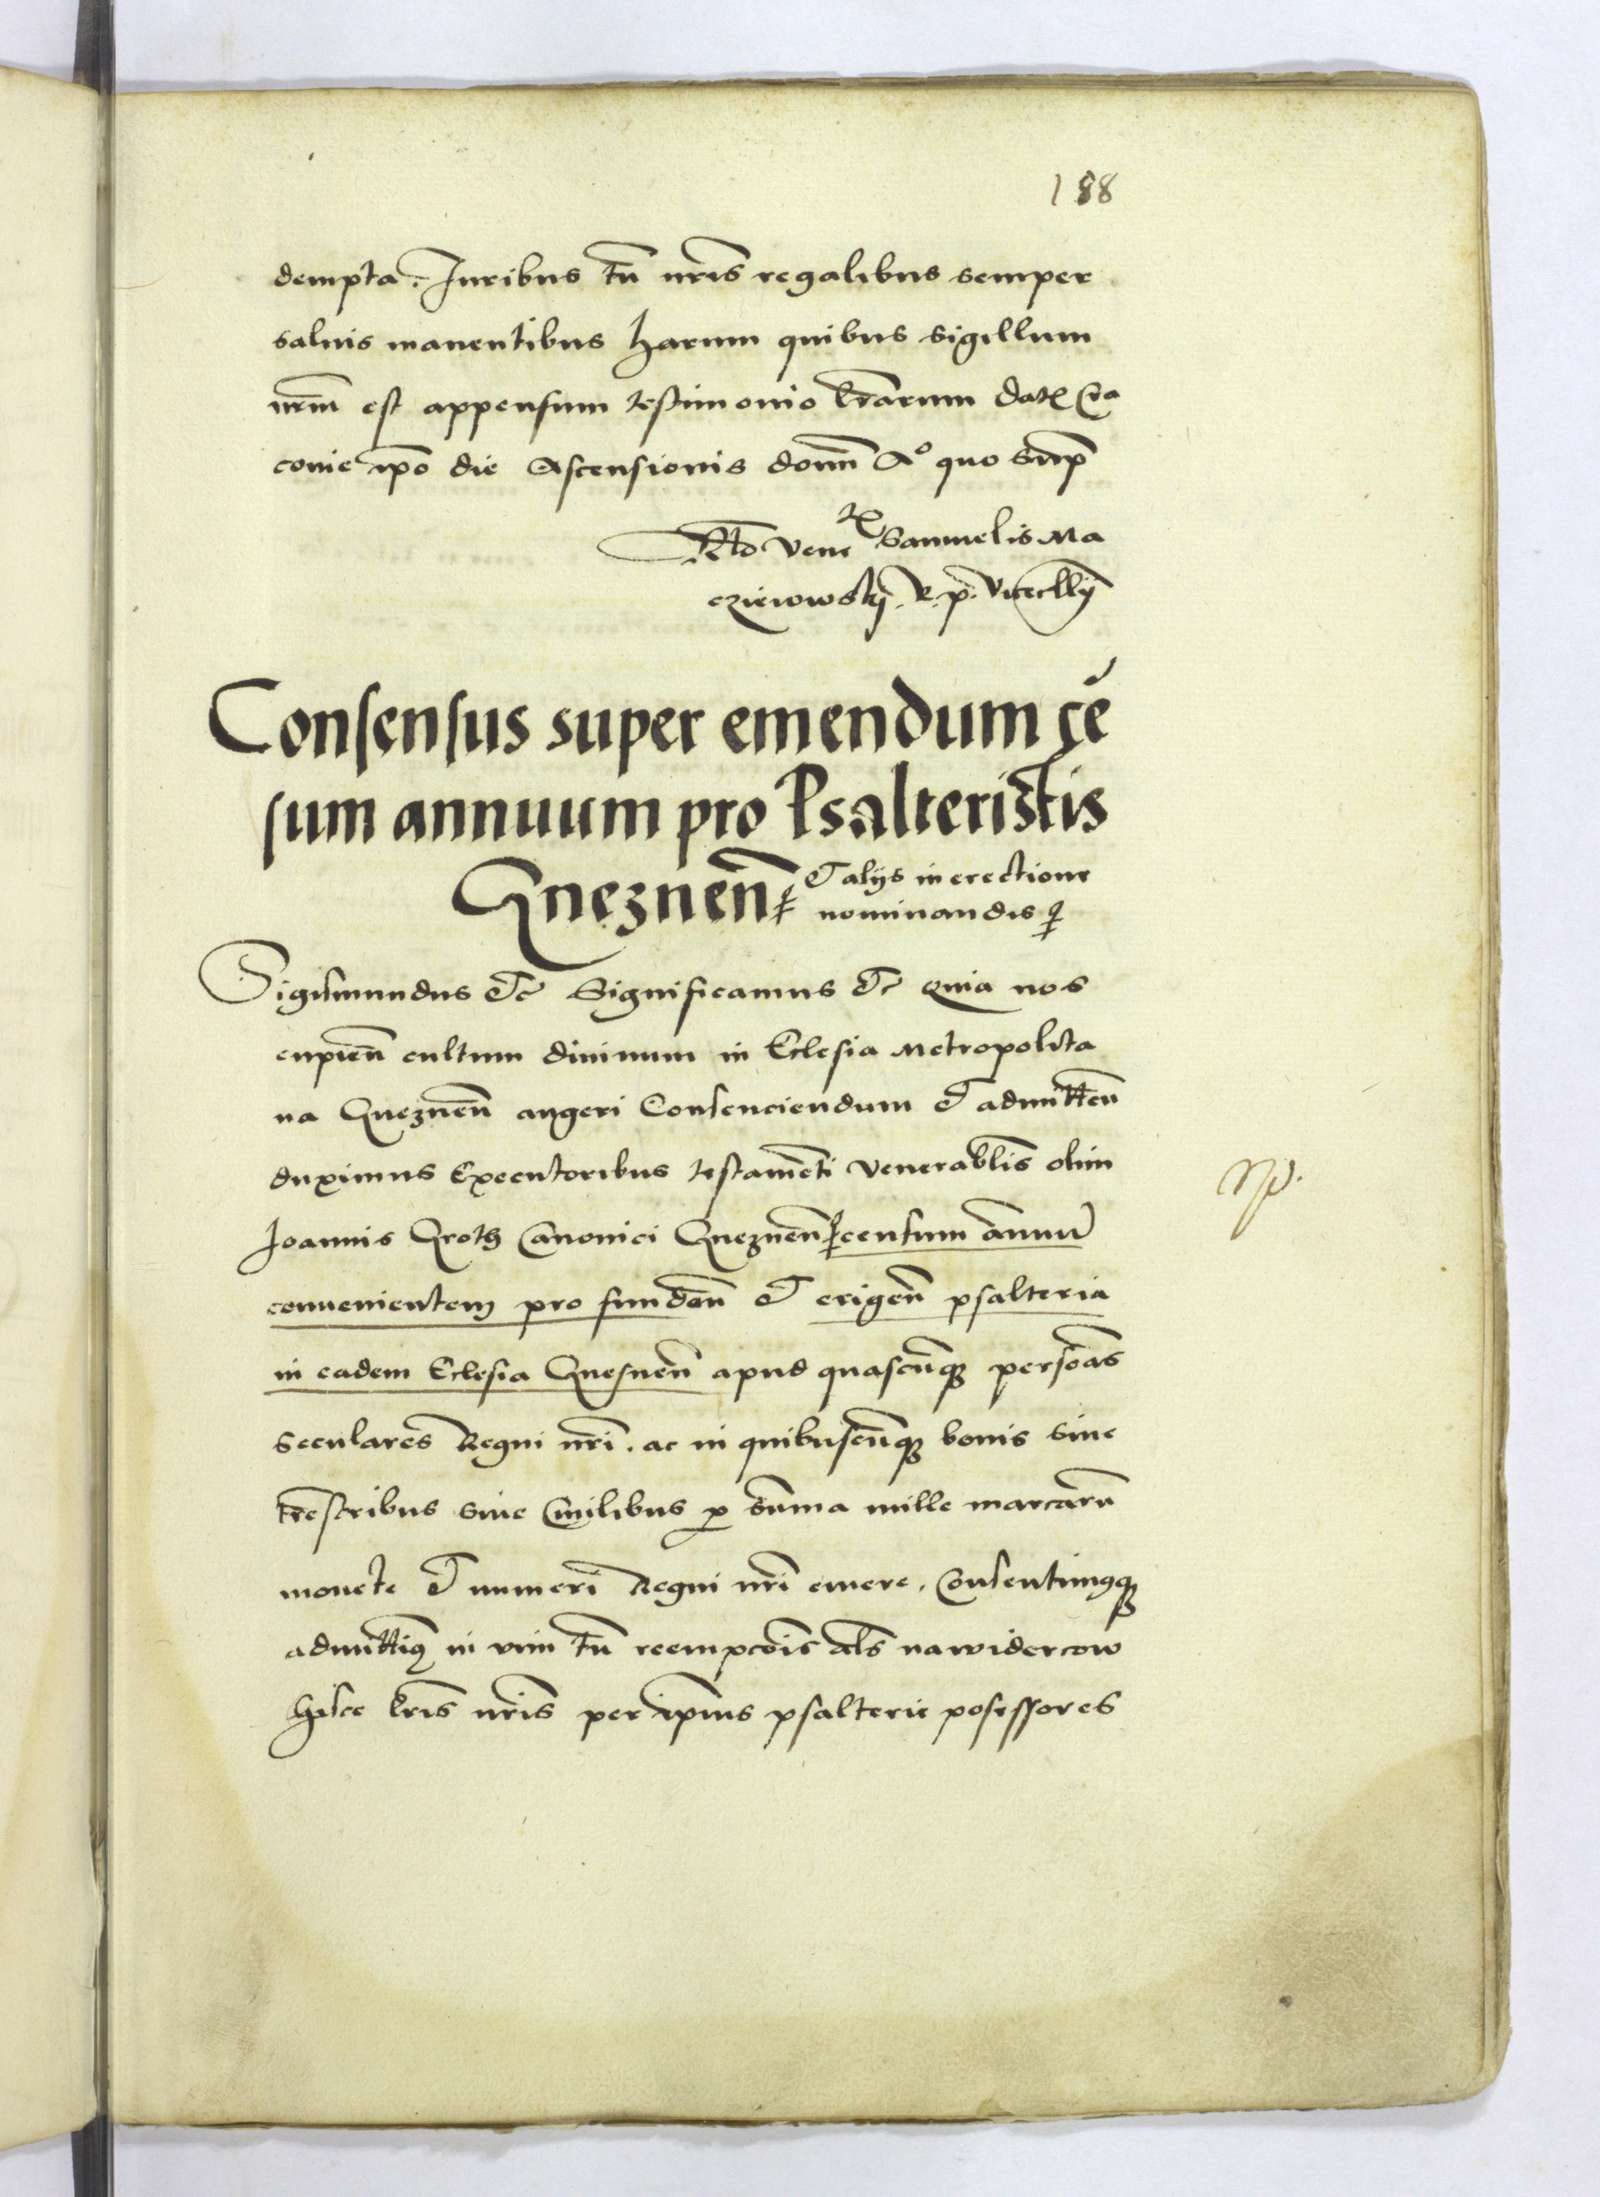 188
dempta. Iuribus tn̄ nr̄is regalibus semper
saluis manentibus harum quibus sigillum
nr̄m est appensum testimonio lr̄arum Datę Cra
couie ip̄o die Ascensionis domī Aº quo sup̄
Rl̄o Vene Samuelis Ma
czieiowskÿ. R. p. Vicecllÿ
Consensus super emendum cē
sum annuum pro Psalteristis
Gneznen̄
& alijs in erectione
nominandis
Sigismundus &c Significamus &c Quia nos
cupien̄ cultum diuinum in Eclesia Metropolita
na Gneznen̄ augeri Consenciendum & admitten̄
duximus Executoribus testamēti Venerabl̄is olim
Joannis Groth Canonici Gneznen̄ censum annuū
conuenientem pro fundan̄ & erigen̄ psalteria
in eadem Eclesia Gnesnen̄ apud quascūq₃ persōas
seculares Regni nr̄i. ac in quibuscūq₃ bonis siue
tr̄estribus siue Ciuilibus p sum̄a mille marcarū
monete & numeri Regni nr̄i emere. Consentimꝰq₃
admittimꝰ in vim tn̄ reempcōis al̄s nawidercow
hisce lr̄is nr̄is per ip̄ius psalterie possessores